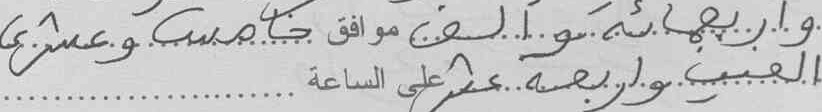 واربعمائة و الف موافق خامس وعشرين
الفين واربعة عشر على الساعة ........................